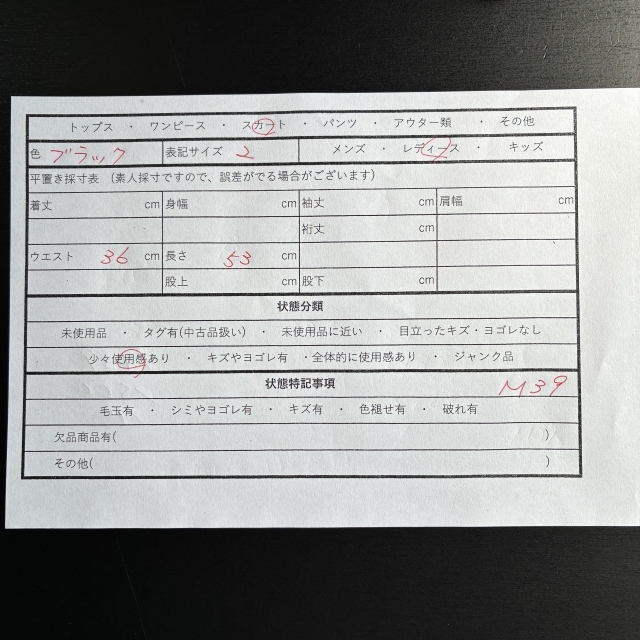 トップス ・ ワンピース ・ スカート ・ パンツ ・ アウター類 ・ その他
色 ブラック 表記サイズ 2 メンズ ・ レディース ・ キッズ
平置き採寸表 (素人採寸ですので、誤差がでる場合がございます)
着丈 cm 身幅 cm 袖丈 cm 肩幅 cm
裄丈 cm
ウエスト 36 cm 長さ 53
股上 cm 股下 cm
状態分類
未使用品 ・ タグ有(中古品扱い) ・ 未使用品に近い ・ 目立ったキズ・ヨゴレなし
少々使用感あり ・ キズやヨゴレ有 ・全体的に使用感あり ・ ジャンク品
状態特記事項 M39
毛玉有 ・ シミやヨゴレ有 ・ キズ有 ・ 色褪せ有 ・ 破れ有
欠品商品有( )
その他( )